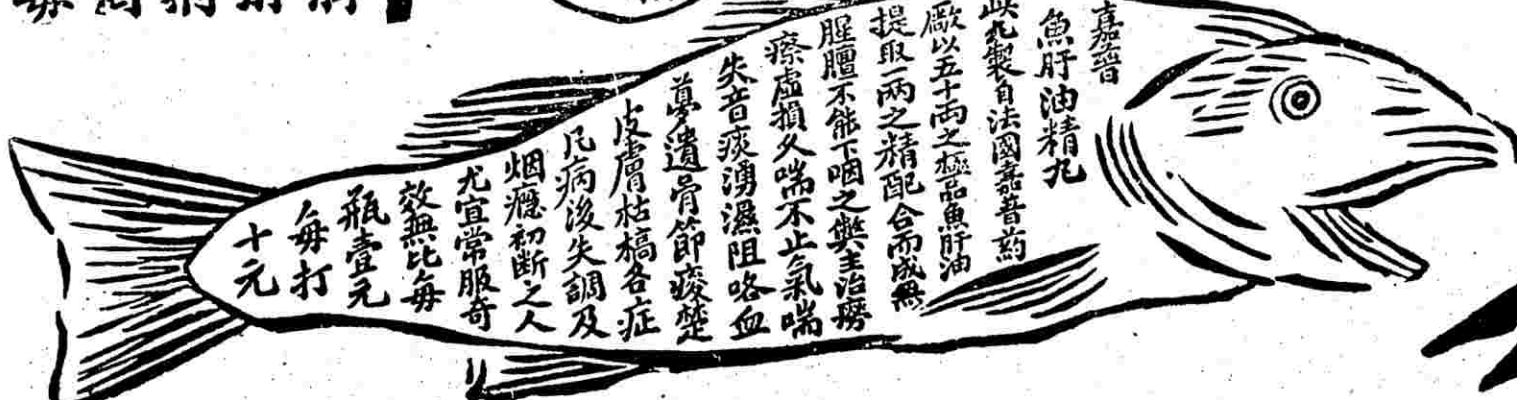 嘉普
魚肝油精丸
此丸製自法國嘉普葯
廠以五十両之極品魚肝油
提取一両之精配合而成無
腥膻不能下咽之弊主治癆
瘵虛損久喘不止氣喘
失音痰湧濕阻咯血
夢遺骨節痠楚
皮膚枯槁各症
凡病後失調及
烟癮初斷之人
尤宜常服奇
效無比每
瓶壹元
每打
十元